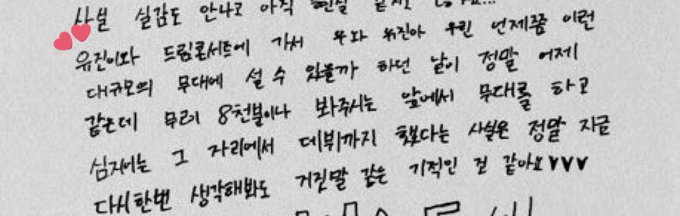 사실 실감도 안나고 아직 현실 같지
유진이와 드림콘서트에 가서 우와 유진아 우린 언제쯤 이런
대규모의 무대에 설 수 있을까 하던 날이 정말 어제
같은데 무려 8천분이나 봐주시는 앞에서 무대를 하고
심지어는 그 자리에서 데뷔까지 했다는 사실은 정말 지금
다시한번 생각해봐도 거짓말 같은 기적인 것 같아요♥♥♥